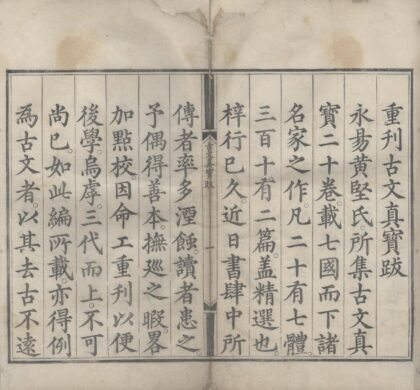 重刊古文真寶跋
永昜黄堅氏。所集古文真
寶二十卷。載七國而下諸
名家之作。凡二十有七體。
三百十有二篇。盖精選也。
梓行已久。近日書肆中所
傳者率多湮蝕。讀者患之。
予偶得善本。撫巡之暇。畧
加點校。因命工重刊以便
後學。烏虖。三代而上。不可
尚已。如此編所載。亦得例
為古文者。以其去古不遠